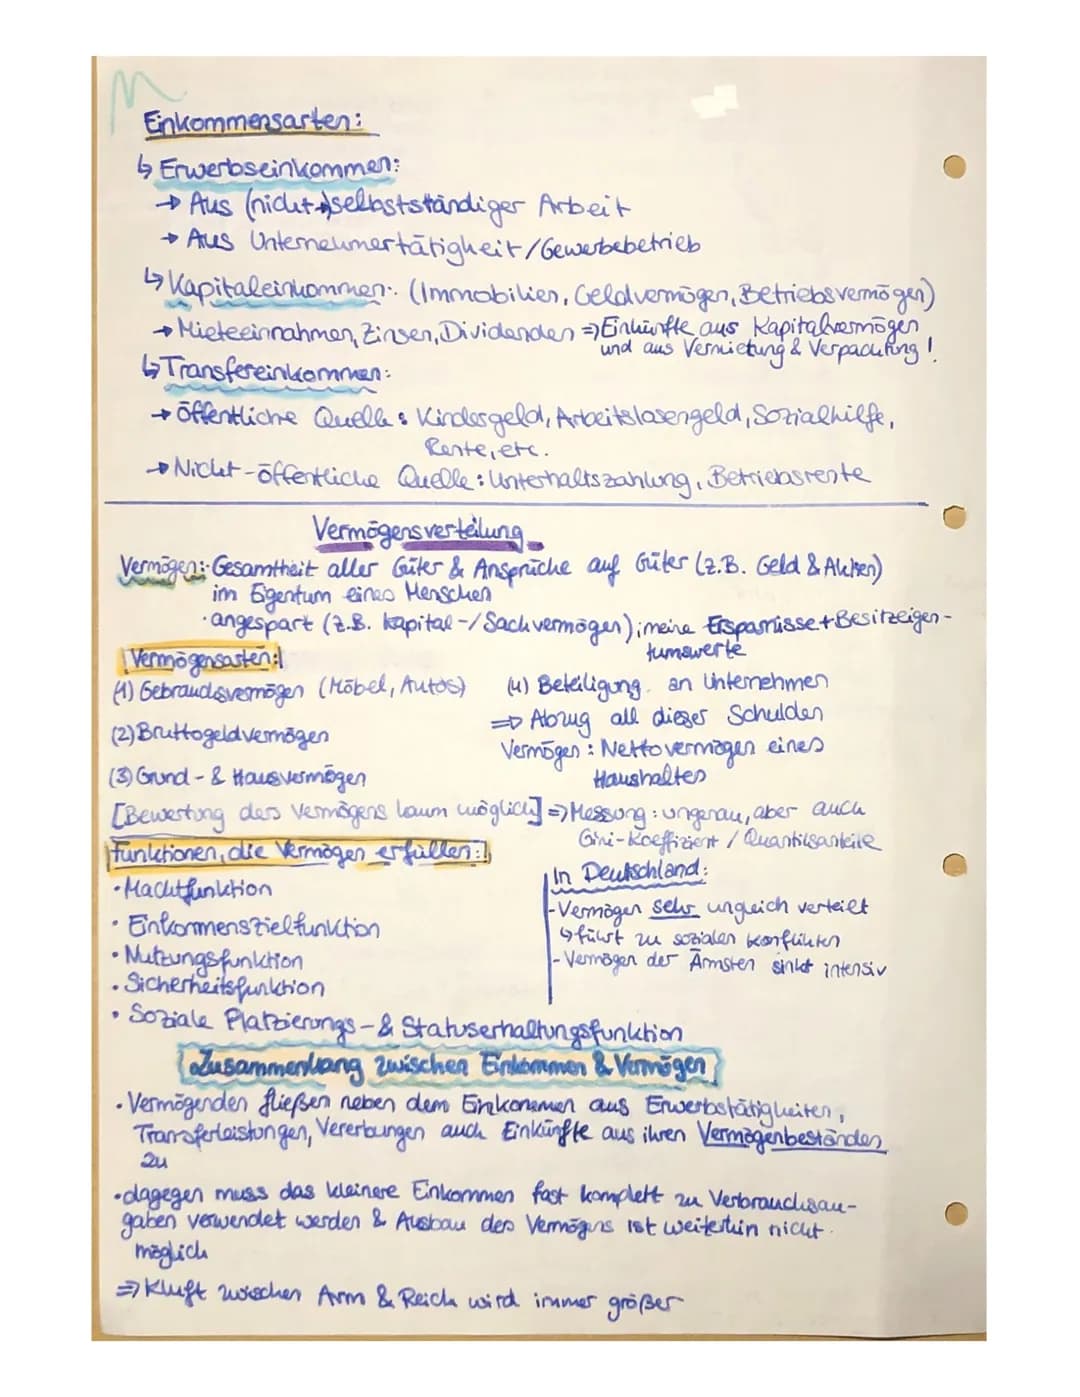 Einkommensarten:
↳ Erwerbseinkommen:
→ Aus (nicht-)selbstständiger Arbeit
→ Aus Unternehmertätigkeit/Gewerbebetrieb
↳ Kapitaleinkommen: (Immobilien, Geldvermögen, Betriebsvermögen)
→ Mieteeinnahmen, Zinsen, Dividenden => Einkünfte aus Kapitalvermögen
und aus Vermietung & Verpachtung!
↳ Transfereinkommen:
→ öffentliche Quelle: Kindergeld, Arbeitslosengeld, Sozialhilfe,
Rente, etc.
→ Nicht-öffentliche Quelle: Unterhaltszahlung, Betriebsrente
Vermögensverteilung
Vermögen: · Gesamtheit aller Güter & Ansprüche auf Güter (z.B. Geld & Aktien)
im Eigentum eines Menschen
· angespart (z.B. Kapital-/Sachvermögen); meine Ersparnisse + Besitzeigen-
tumswerte
Vermögensarten:
(1) Gebrauchsvermögen (Möbel, Autos)
(2) Bruttogeldvermögen
(3) Grund- & Hausvermögen
(4) Beteiligung an Unternehmen
=> Abzug all dieser Schulden
Vermögen: Nettovermögen eines
Haushaltes
[Bewertung des Vermögens kaum möglich] => Messung: ungenau, aber auch
Gini-Koeffizient / Quantilsanteile
Funktionen, die Vermögen erfüllen:
· Machtfunktion
· Einkommenszielfunktion
· Nutzungsfunktion
· Sicherheitsfunktion
· Soziale Platzierungs- & Statuserhaltungsfunktion
In Deutschland:
- Vermögen sehr ungleich verteilt
↳ führt zu sozialen Konflikten
- Vermögen der Ärmsten sinkt intensiv
Zusammenhang zwischen Einkommen & Vermögen
· Vermögenden fließen neben dem Einkommen aus Erwerbstätigkeiten,
Transferleistungen, Vererbungen auch Einkünfte aus ihren Vermögenbeständen
zu
· dagegen muss das kleinere Einkommen fast komplett zu Verbrauchsau-
gaben verwendet werden & Ausbau des Vermögens ist weiterhin nicht
möglich
=> Kluft zwischen Arm & Reich wird immer größer